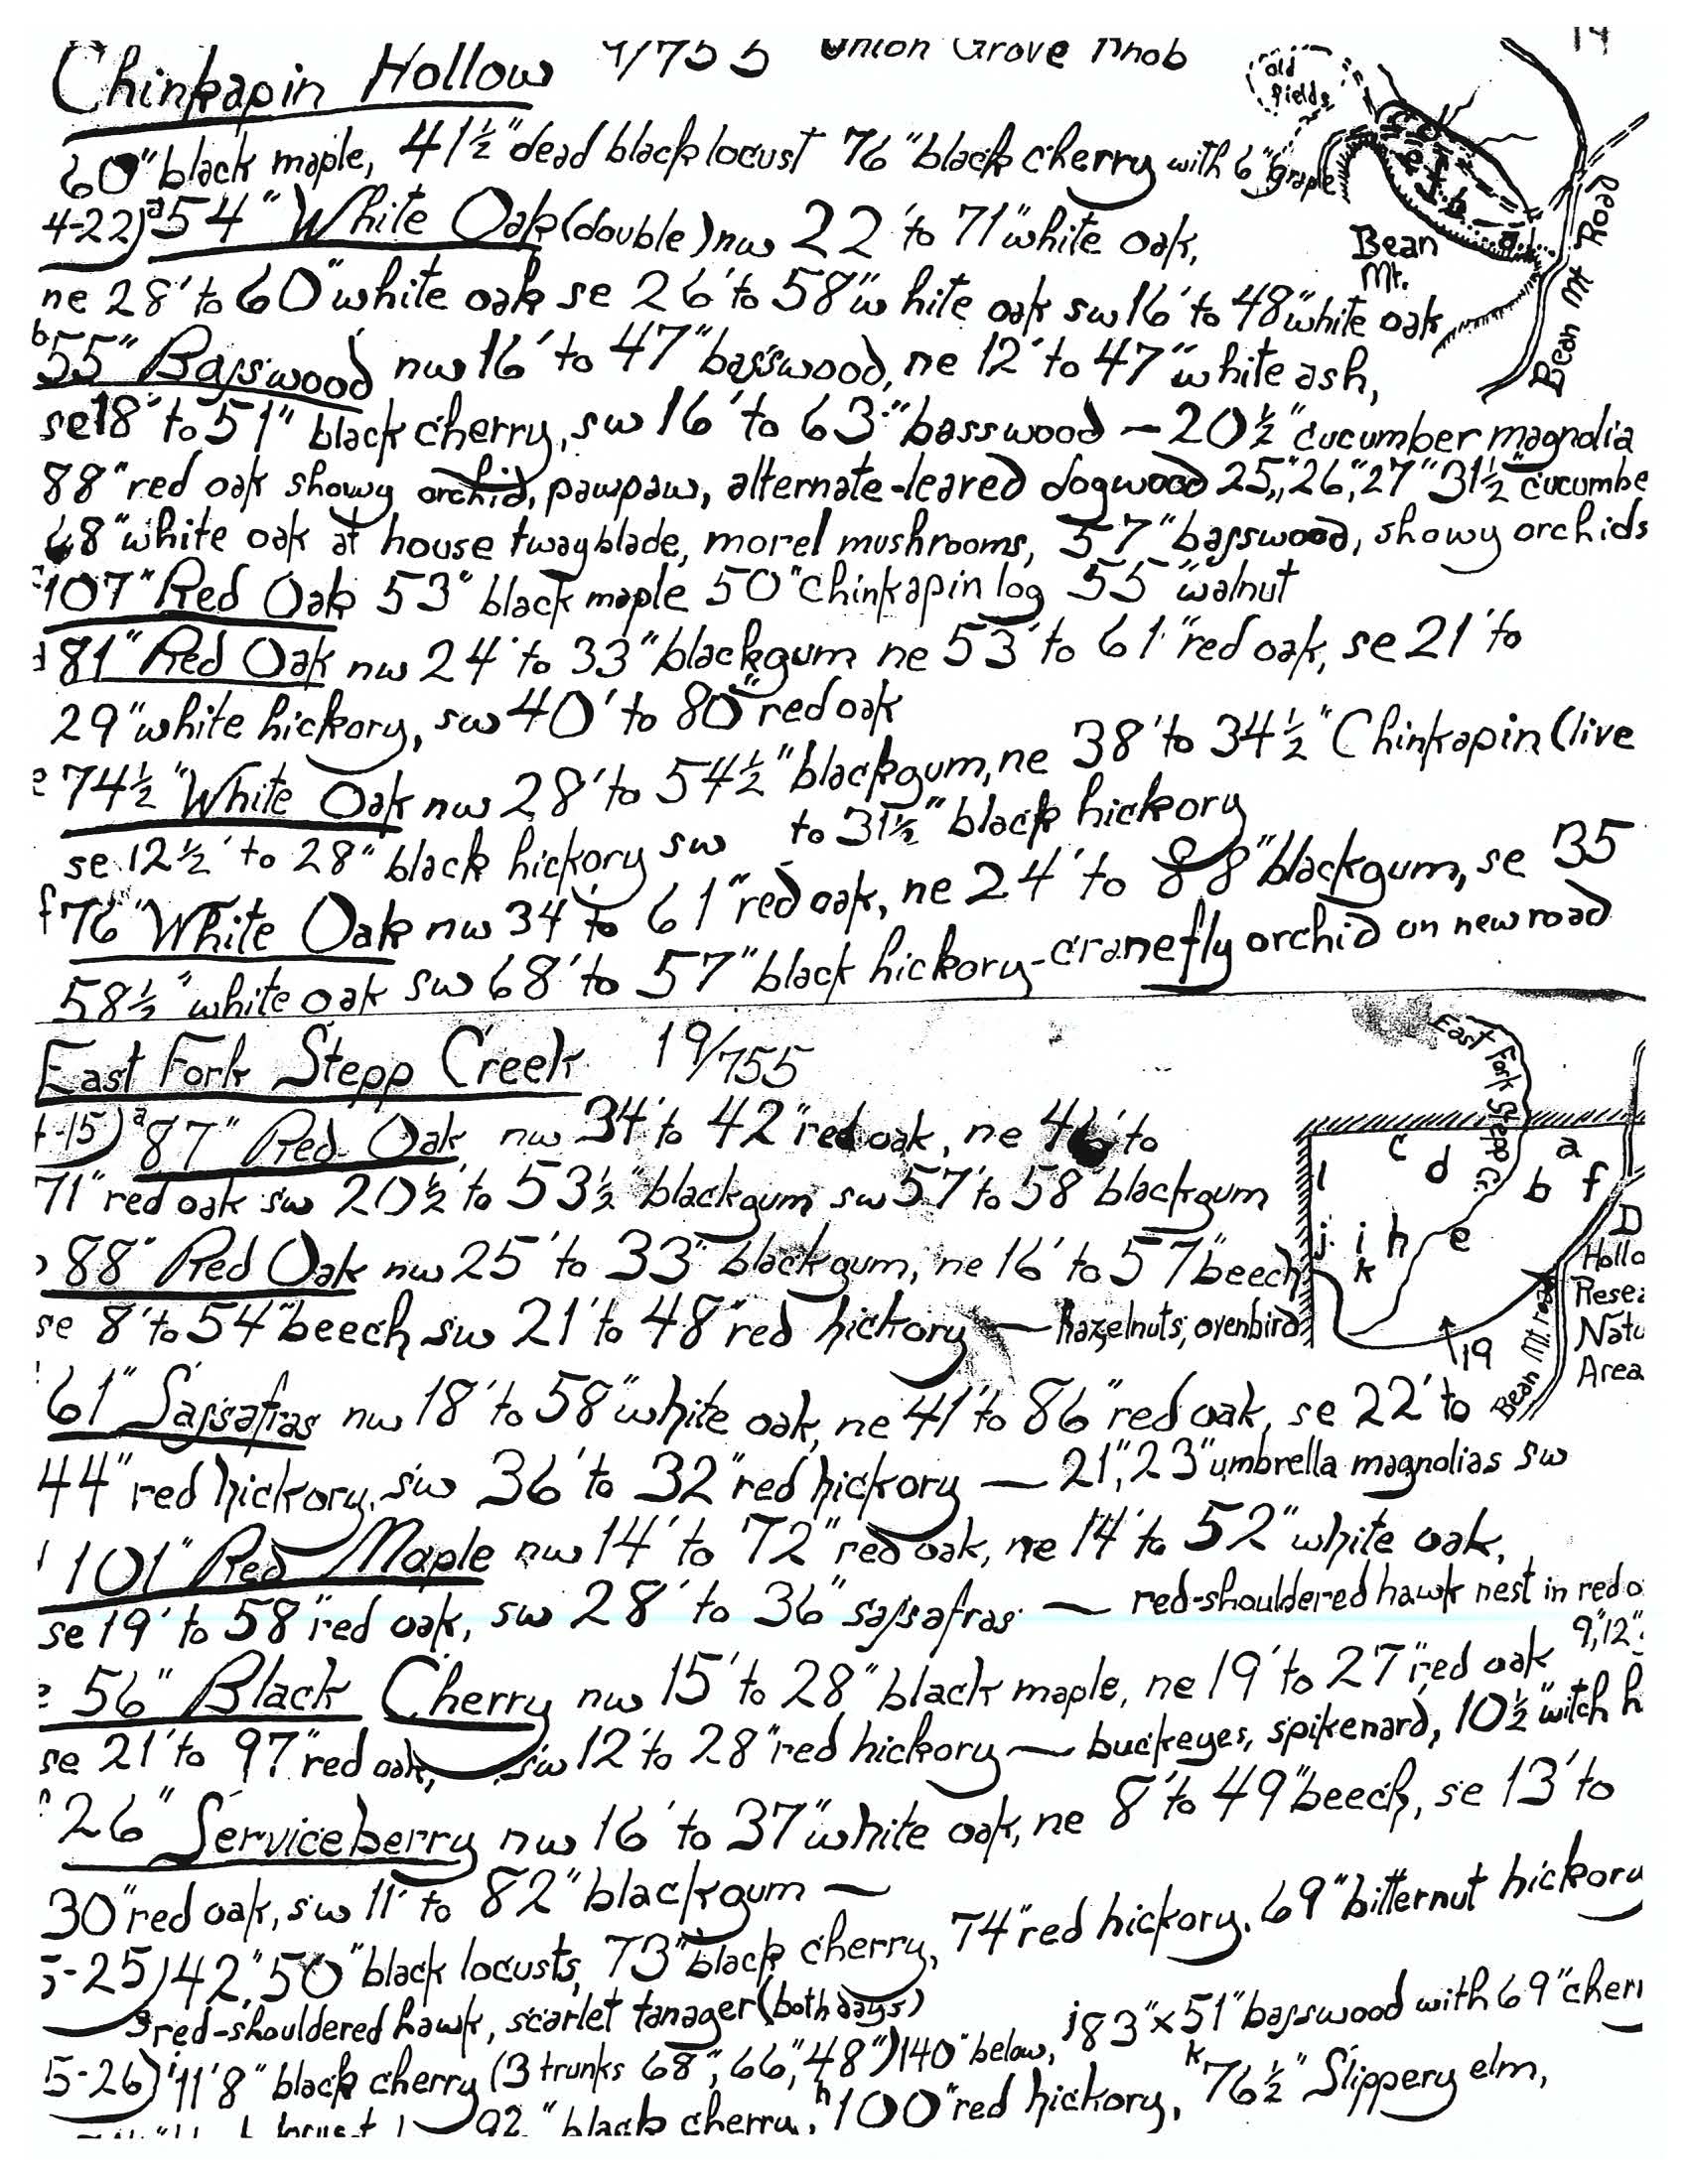 Chinkapin Hollow 4/755 Union Grove Knob 14
60" black maple, 41½" dead black locust 76" black cherry with 6" grape
4-22) a 54" White Oak (double) nw 22' to 71" white oak,
ne 28' to 60" white oak se 26' to 58" white oak sw 16' to 48" white oak
b 55" Basswood nw 16' to 47" basswood, ne 12' to 47" white ash,
se 18' to 51" black cherry, sw 16' to 63" basswood — 20½" cucumber magnolia
88" red oak showy orchid, pawpaw, alternate-leared dogwood 25", 26", 27" 31½" cucumbe
68" white oak at house twayblade, morel mushrooms, 57" basswood, showy orchids
c 107" Red Oak 53" black maple 50" Chinkapin log 55" walnut
d 81" Red Oak nw 24' to 33" blackgum ne 53' to 61" red oak, se 21' to
29" white hickory, sw 40' to 80" red oak
e 74½" White Oak nw 28' to 54½" blackgum, ne 38' to 34½" Chinkapin (live
se 12½' to 28" black hickory sw to 31½" black hickory
f 76" White Oak nw 34' to 61" red oak, ne 24' to 88" blackgum, se 35
58½" white oak sw 68' to 57" black hickory - cranefly orchid on new road
old
fields
e
f
b
a
Bean
Mt.
Bean Mt Road
East Fork Stepp Creek 19/755
4-15) a 87" Red Oak nw 34' to 42" red oak, ne 46' to
71" red oak sw 20½' to 53½" blackgum sw 57' to 58" blackgum
b 88" Red Oak nw 25' to 33" blackgum, ne 16' to 57" beech
se 8' to 54" beech sw 21' to 48" red hickory — hazelnuts, ovenbird
61" Sassafras nw 18' to 58" white oak, ne 41' to 86" red oak, se 22' to
44" red hickory, sw 36' to 32" red hickory — 21", 23" umbrella magnolias sw
101" Red Maple nw 14' to 72" red oak, ne 14' to 52" white oak,
se 19' to 58" red oak, sw 28' to 36" sassafras — red-shouldered hawk nest in red o
9", 12"
e 56" Black Cherry nw 15' to 28" black maple, ne 19' to 27" red oak
se 21' to 97" red oak, sw 12' to 28" red hickory — buckeyes, spikenard, 10½" witch h
f 26" Serviceberry nw 16' to 37" white oak, ne 8' to 49" beech, se 13' to
30" red oak, sw 11' to 82" blackgum —
5-25) 42", 50" black locusts, 73" black cherry, 74" red hickory, 69" bitternut hickory
g red-shouldered hawk, scarlet tanager (both days)
5-26) i 11'8" black cherry (3 trunks 68", 66", 48") 140" below, j 83" x 51" basswood with 69" cherr
92" black cherry, h 100" red hickory, k 76½" Slippery elm,
East Fork Stepp Cr.
c
d
a
l
b
f
j
i
h
e
k
19
Bean Mt. road
D
Hollo
Resea
Natu
Area